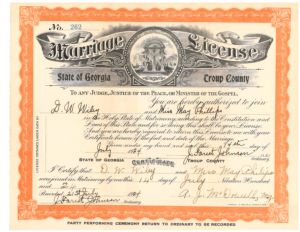 No. 262
Marriage License
State of Georgia Troup County
TO ANY JUDGE, JUSTICE OF THE PEACE, OR MINISTER OF THE GOSPEL.
You are hereby authorized to join
D. W. Wiley Miss May Phillips
in the Holy State of Matrimony according to the Constitution and
Laws of this State and for so doing this shall be your
And you are hereby required to return this License to me with your
Certificate hereon of the fact and date of the Marriage.
Given under my hand and seal this
July
STATE OF GEORGIA TROUP COUNTY
Certificate
I Certify that D. W. Wiley and Miss May Phillips
were joined in Matrimony by me this day of July Nineteen Hundred
and
Recorded July
PARTY PERFORMING CEREMONY RETURN TO ORDINARY TO BE RECORDED